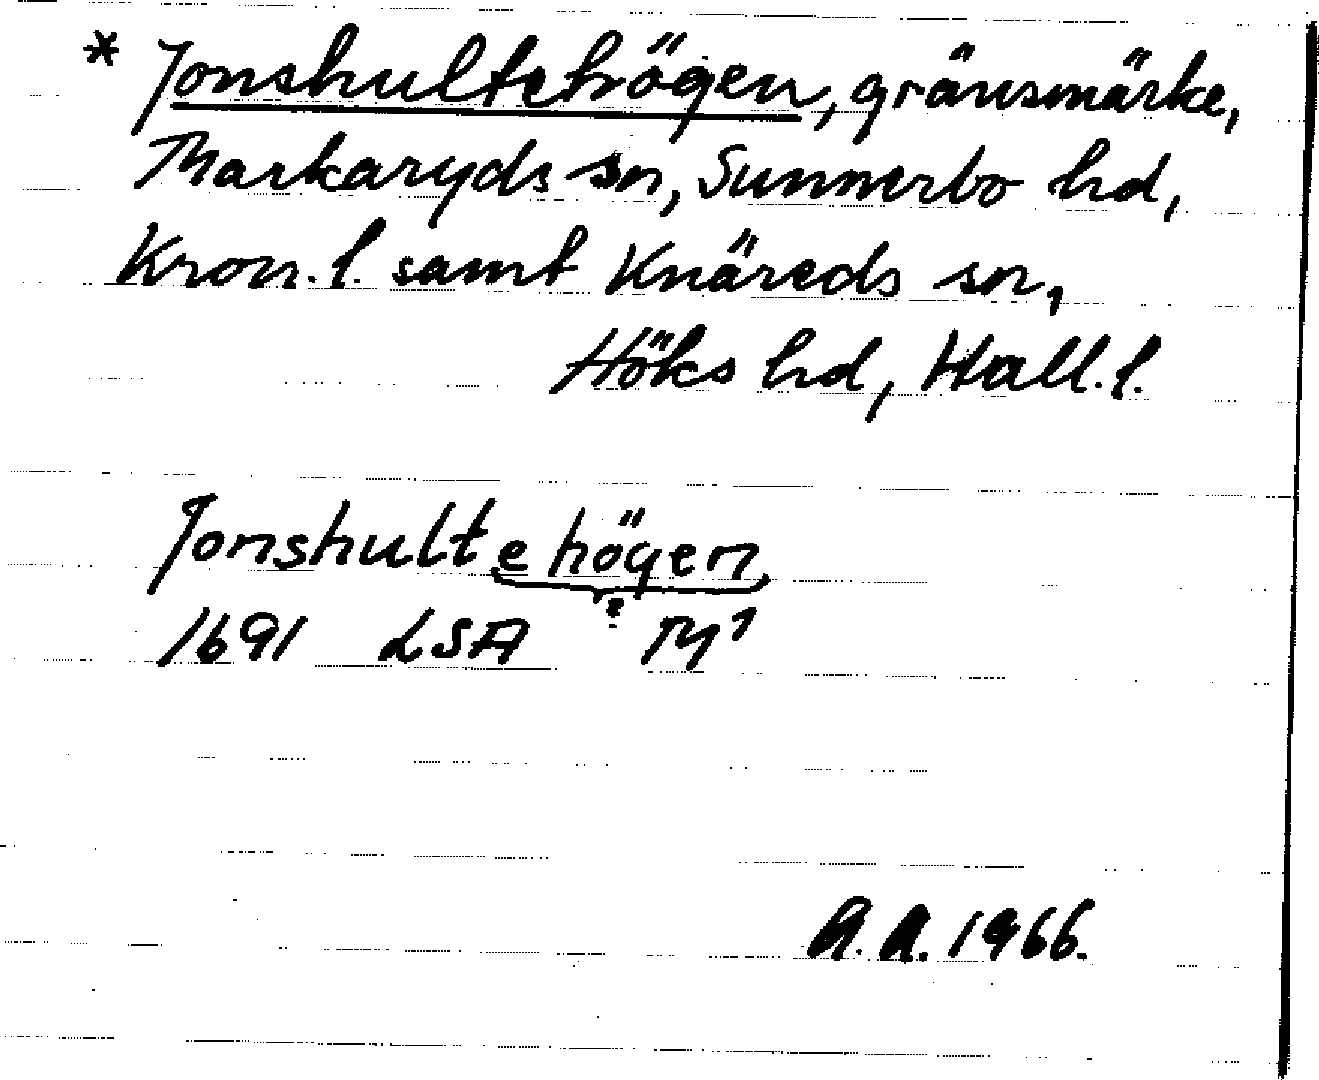 * Jonshultehögen, gränsmärke,
Markaryds sn, Sunnerbo hd,
Kron. l. samt Knäreds sn,
Höks hd, Hall. l.
Jonshultehögen
?
1691 LSA M1
A. A. 1966.